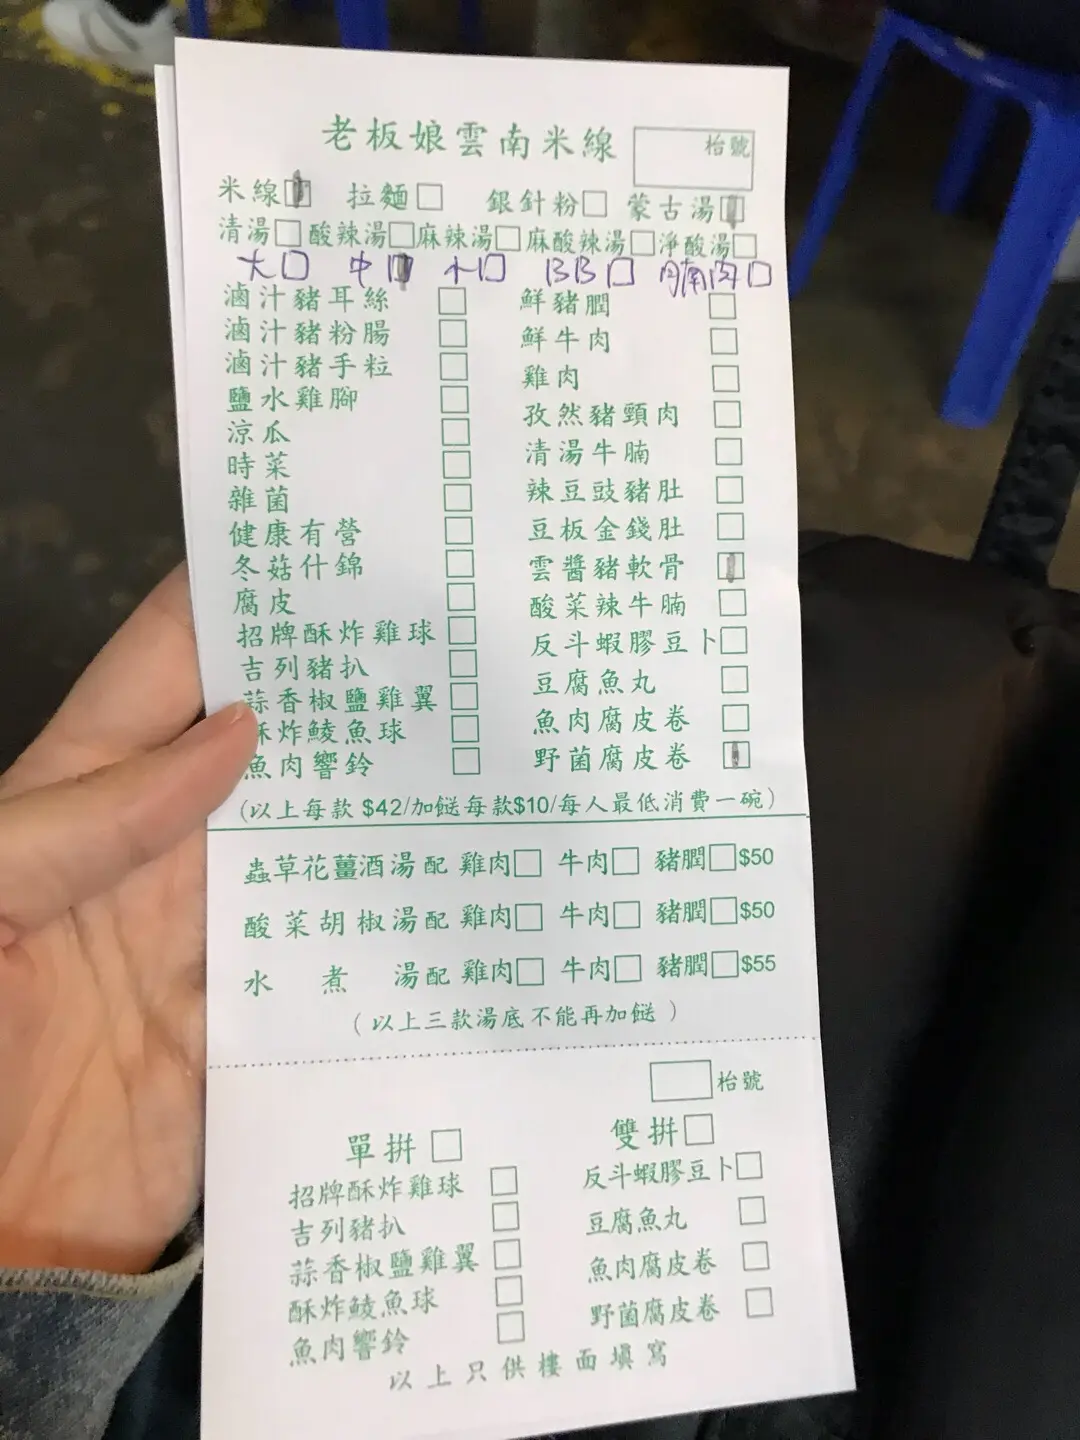 老板娘雲南米線 枱號
米線 拉麵 銀針粉 蒙古湯
清湯 酸辣湯 麻辣湯 麻酸辣湯 淨酸湯
大 中 小 BB 腩肉
滷汁豬耳絲 鮮豬膶
滷汁豬粉腸 鮮牛肉
滷汁豬手粒 雞肉
鹽水雞腳 孜然豬頸肉
涼瓜 清湯牛腩
時菜 辣豆豉豬肚
雜菌 豆板金錢肚
健康有營 雲醬豬軟骨
冬菇什錦 酸菜辣牛腩
腐皮 反斗蝦膠豆卜
招牌酥炸雞球 豆腐魚丸
吉列豬扒 魚肉腐皮卷
蒜香椒鹽雞翼 野菌腐皮卷
酥炸鯪魚球
魚肉響鈴
(以上每款 $42/加餸每款$10/每人最低消費一碗)
蟲草花薑酒湯配 雞肉 牛肉 豬膶 $50
酸菜胡椒湯配 雞肉 牛肉 豬膶 $50
水煮湯配 雞肉 牛肉 豬膶 $55
(以上三款湯底不能再加餸)
枱號
單拼 雙拼
招牌酥炸雞球 反斗蝦膠豆卜
吉列豬扒 豆腐魚丸
蒜香椒鹽雞翼 魚肉腐皮卷
酥炸鯪魚球 野菌腐皮卷
魚肉響鈴
以上只供樓面填寫